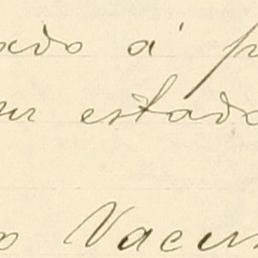 ado á p
m estado
o Vacun